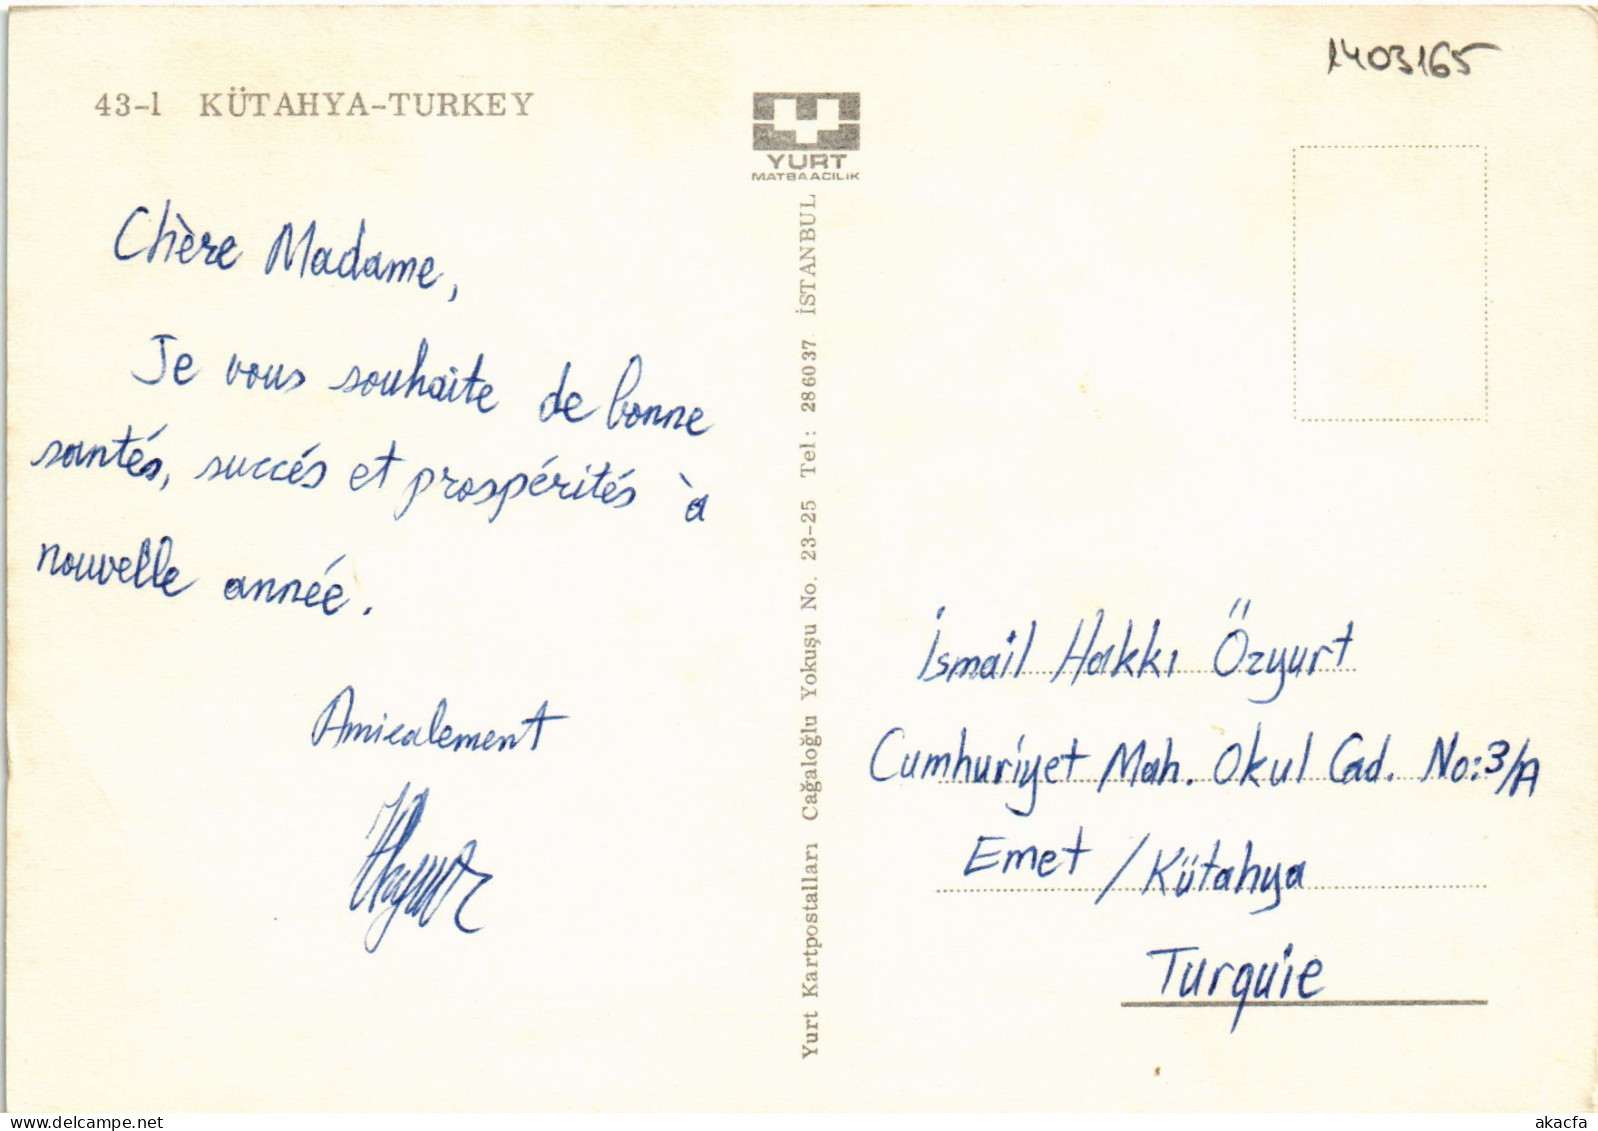 43-1 KÜTAHYA-TURKEY
1403165
YURT
MATBAACILIK
Chère Madame,
Je vous souhaite de bonne
santés, succés et prospérités à
nouvelle année.
Amicalement
Yurt Kartpostalları Cağaloğlu Yokuşu No. 23-25 Tel: 286037 İSTANBUL
İsmail Hakkı Özyurt
Cumhuriyet Mah. Okul Cad. No:3/A
Emet / Kütahya
Turquie
akacfa